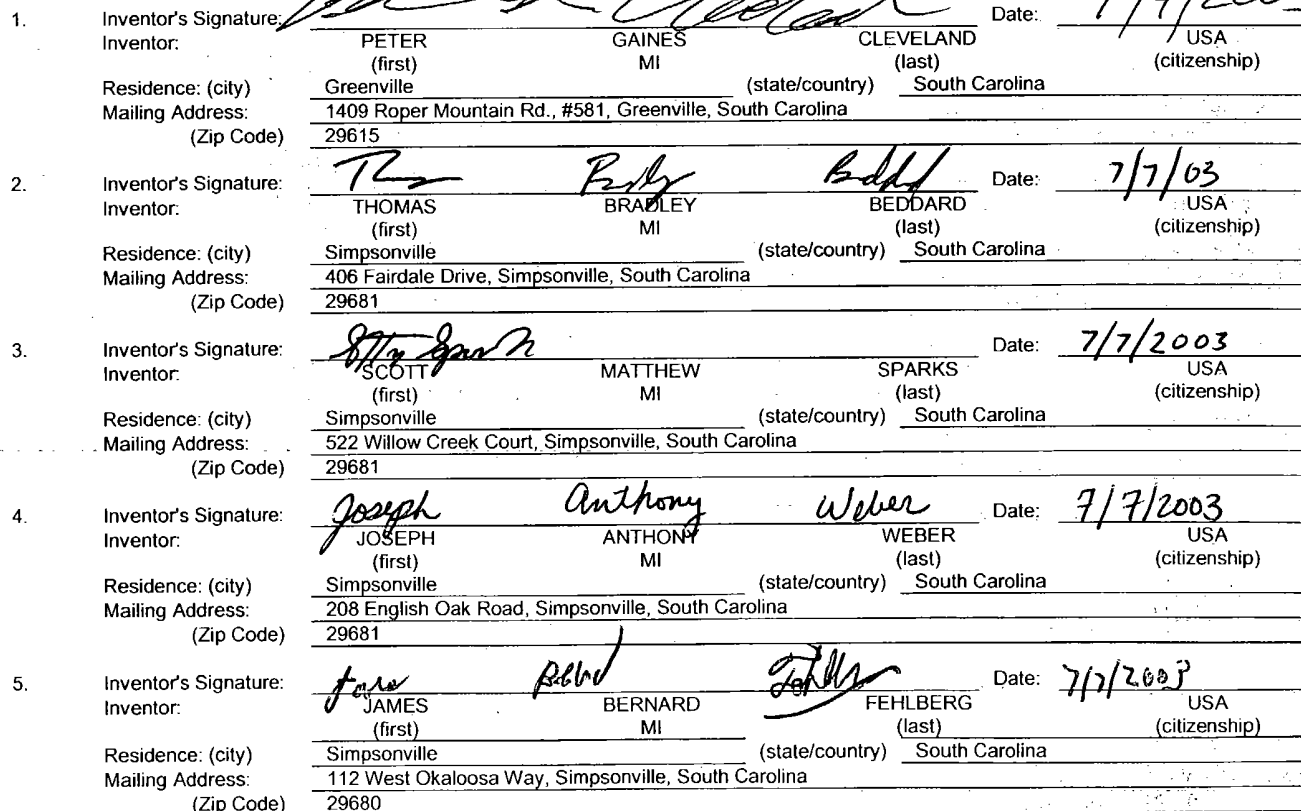 1. Inventor's Signature: Date: 7/7/2003
Inventor: PETER GAINES CLEVELAND USA
(first) MI (last) (citizenship)
Residence: (city) Greenville (state/country) South Carolina
Mailing Address: 1409 Roper Mountain Rd., #581, Greenville, South Carolina
(Zip Code) 29615
2. Inventor's Signature: Date: 7/7/03
Inventor: THOMAS BRADLEY BEDDARD USA
(first) MI (last) (citizenship)
Residence: (city) Simpsonville (state/country) South Carolina
Mailing Address: 406 Fairdale Drive, Simpsonville, South Carolina
(Zip Code) 29681
3. Inventor's Signature: Date: 7/7/2003
Inventor: SCOTT MATTHEW SPARKS USA
(first) MI (last) (citizenship)
Residence: (city) Simpsonville (state/country) South Carolina
Mailing Address: 522 Willow Creek Court, Simpsonville, South Carolina
(Zip Code) 29681
4. Inventor's Signature: Joseph Anthony Weber Date: 7/7/2003
Inventor: JOSEPH ANTHONY WEBER USA
(first) MI (last) (citizenship)
Residence: (city) Simpsonville (state/country) South Carolina
Mailing Address: 208 English Oak Road, Simpsonville, South Carolina
(Zip Code) 29681
5. Inventor's Signature: Date: 7/7/2003
Inventor: JAMES BERNARD FEHLBERG USA
(first) MI (last) (citizenship)
Residence: (city) Simpsonville (state/country) South Carolina
Mailing Address: 112 West Okaloosa Way, Simpsonville, South Carolina
(Zip Code) 29680